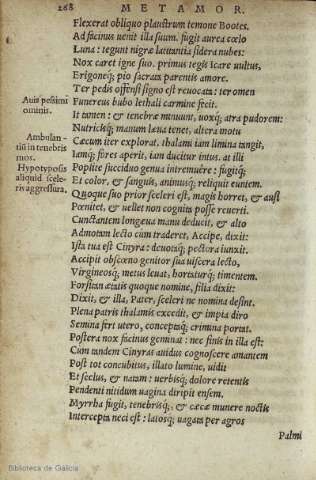 268 METAMOR.
Flexerat obliquo plaustrum temone Bootes.
Ad facinus uenit illa suum. fugit aurea cœlo
Luna: tegunt nigræ latitantia sidera nubes:
Nox caret igne suo. primus tegis Icare uultus,
Erigoneq; pio sacrata parentis amore.
Ter pedis offensi signo est reuocata: ter omen
Auis pessimi
ominis.
Funereus bubo lethali carmine fecit.
It tamen: & tenebræ minuunt, noxq; atra pudorem:
Nutricisq; manum læua tenet, altera motu
Ambulan-
tiũ in tenebris
mos.
Cæcum iter explorat. thalami iam limina tangit,
Iamq; fores aperit, iam ducitur intus. at illi
Hypotyposis
aliquid scele-
ris aggressura.
Poplite succiduo genua intremuere: fugitq;
Et color, & sanguis, animusq; reliquit euntem.
Quoque suo prior sceleri est, magis horret, & ausi
Pœnitet, & uellet non cognita posse reuerti.
Cunctantem longæua manu deducit, & alto
Admotam lecto cum traderet, Accipe, dixit:
Ista tua est Cinyra: deuotaq; pectora iunxit.
Accipit obscœno genitor sua uiscera lecto,
Virgineosq; metus leuat, hortaturq; timentem.
Forsitan ætatis quoque nomine, filia dixit:
Dixit, & illa, Pater, sceleri ne nomina desint.
Plena patris thalamis excedit, & impia diro
Semina fert utero, conceptaq; crimina portat.
Postera nox facinus geminat: nec finis in illa est:
Cum tandem Cinyras auidus cognoscere amantem
Post tot concubitus, illato lumine, uidit
Et scelus, & natam: uerbisq; dolore retentis
Pendenti nitidum uagina diripit ensem.
Myrrha fugit, tenebrisq; & cæcæ munere noctis
Intercepta neci est: latosq; uagata per agros
Palmi
Biblioteca de Galicia